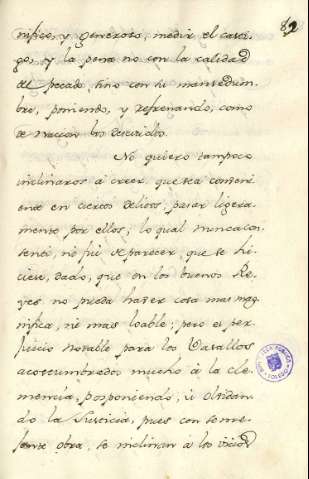 82
nifico, y generoso, medir el casti-
go, y la pena no con la calidad
del pecado, sino con su mansedum-
bre, poniendo, y refrenando, como
de los descuidos.
No quiero tampoco
inclinaros á creer que sea conveni-
ente en ciertos delitos, pasar ligera-
mente por ellos; lo qual nunca con-
sentí, ni fuí de parecer, que se hi-
ciese, dado, que en los buenos Re-
yes no pueda haver cosa mas mag-
nifica, ni mas loable; pero es per-
juicio notable para los Vasallos
acostumbrados mucho à la cle-
mencia, posponiendo, ú olvidan-
do la Justicia, pues con seme-
jante obra, se inclinan à los vicios